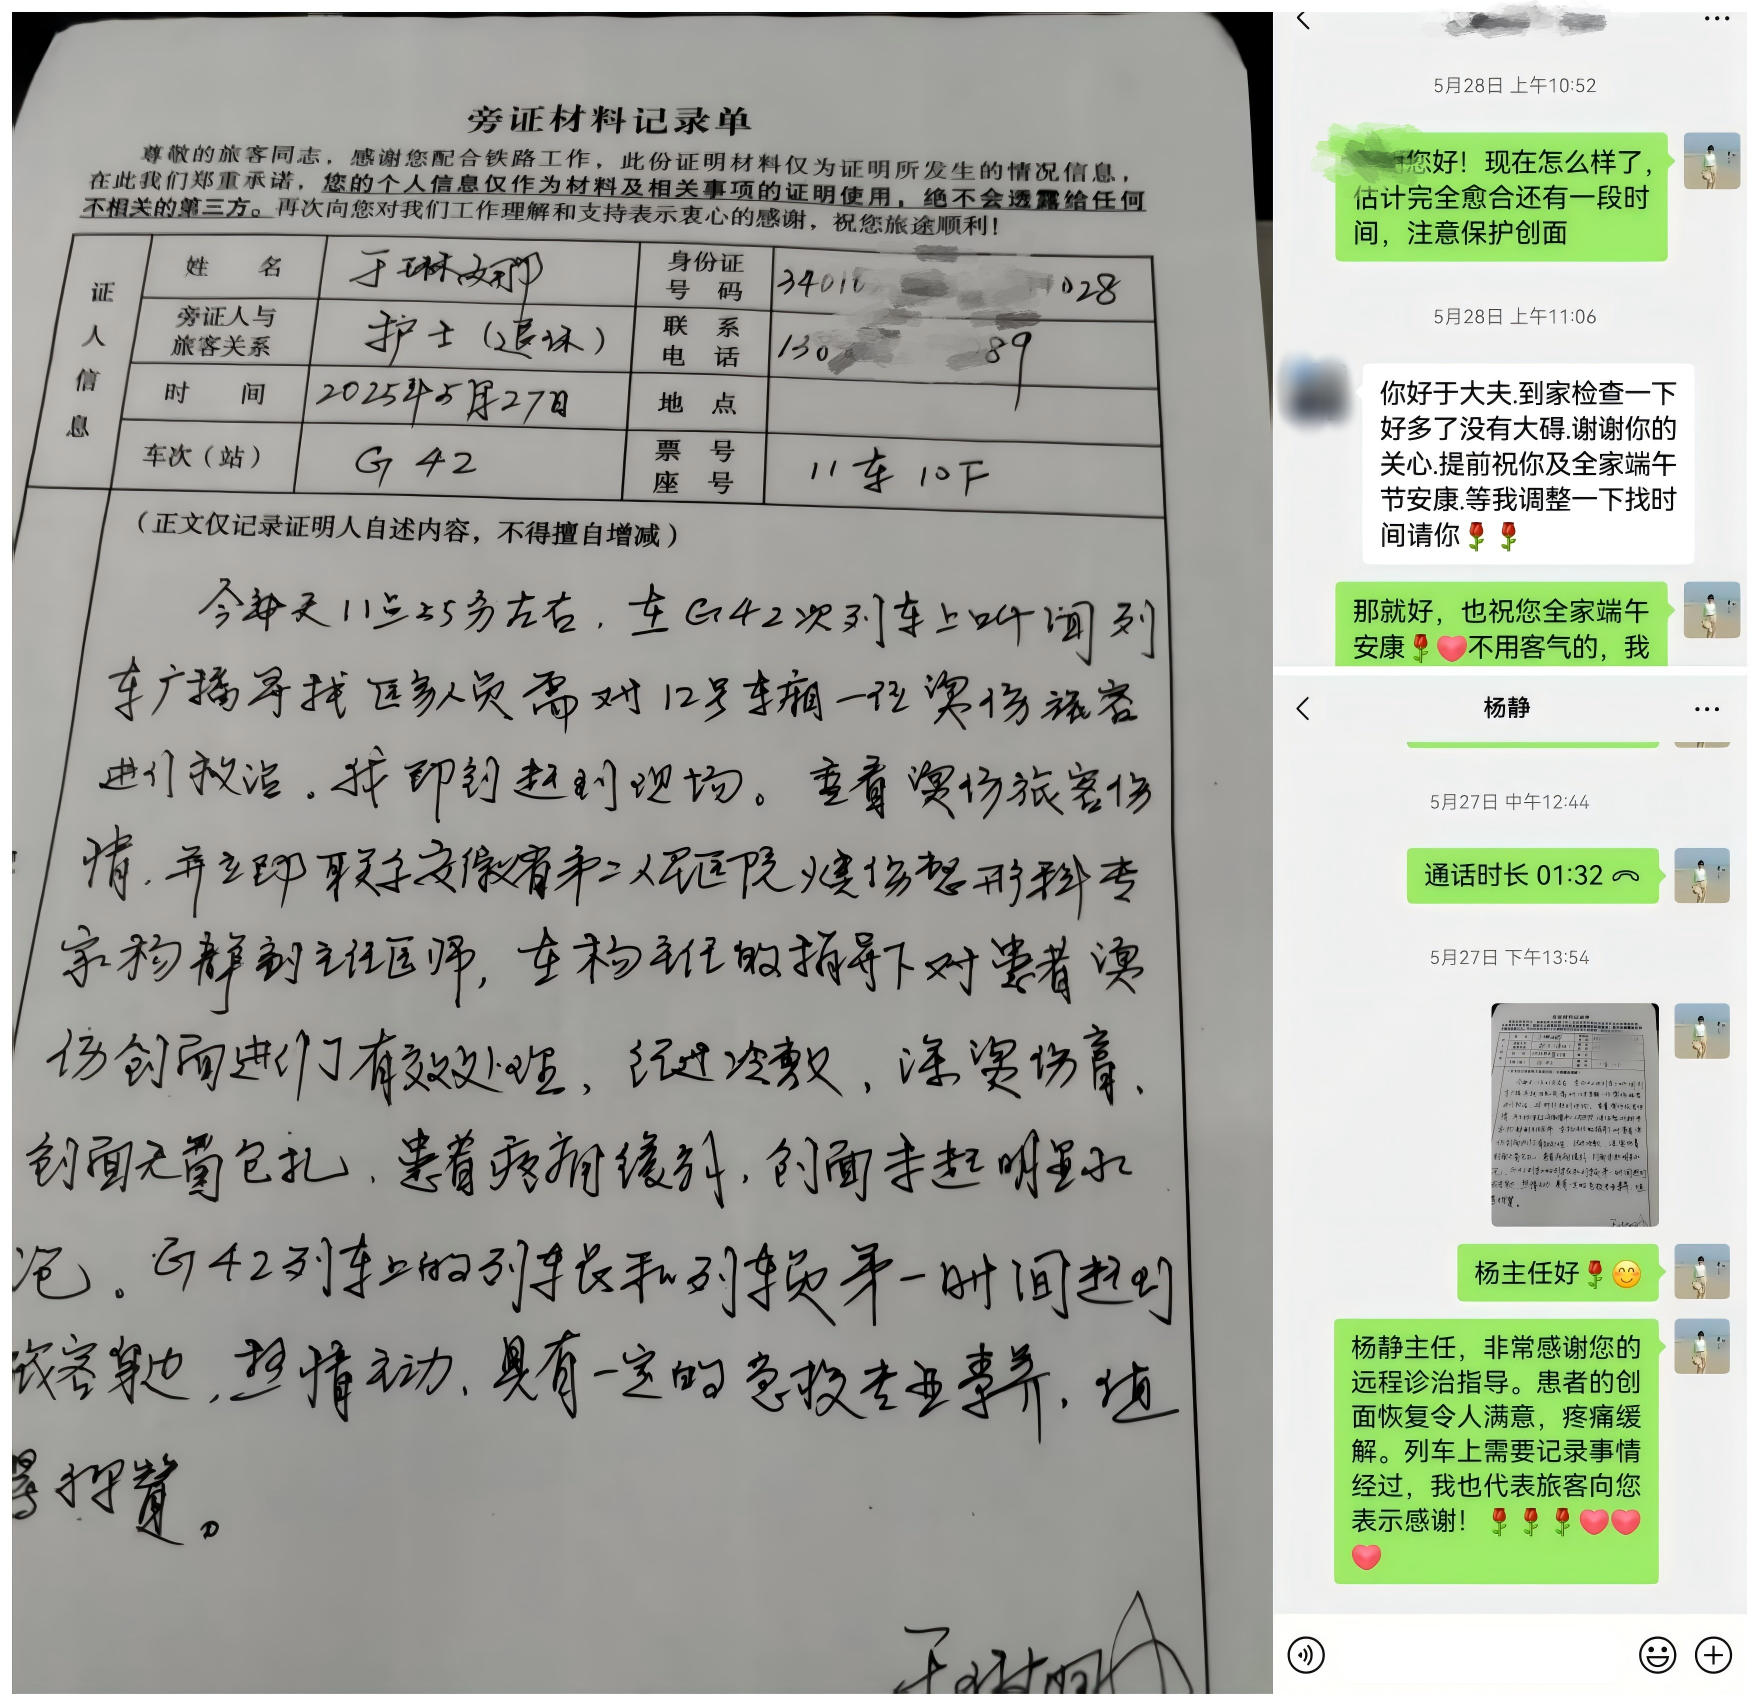 旁证材料记录单
尊敬的旅客同志，感谢您配合铁路工作，此份证明材料仅为证明所发生的情况信息，
在此我们郑重承诺，您的个人信息仅作为材料及相关事项的证明使用，绝不会透露给任何
不相关的第三方。再次向您对我们工作理解和支持表示衷心的感谢，祝您旅途顺利！
证人信息
姓 名
身份证号码 3401 028
旁证人与旅客关系 护士（退休）
联系电话 130 89
时 间 2025年5月27日
地 点
车次（站） G 42
票号座号 11车 10F
（正文仅记录证明人自述内容，不得擅自增减）
今天11点25分左右，在G42次列车上听闻列
车广播寻找医务人员需对12号车厢一位烫伤旅客
进行救治。我即刻赶到现场。查看烫伤旅客伤
情，并立即联系安徽省第二人民医院烧伤整形科专
家杨静副主任医师，在杨主任的指导下对患者烫
伤创面进行了有效处理，经过冷敷，涂烫伤膏，
创面无菌包扎，患者疼痛缓解，创面未起明显水
泡。G42列车上的列车长和列车员第一时间赶到
旅客身边，热情主动，具有一定的急救专业素养，值
得称赞。
5月28日 上午10:52
您好！现在怎么样了，
估计完全愈合还有一段时
间，注意保护创面
5月28日 上午11:06
你好于大夫.到家检查一下
好多了没有大碍.谢谢你的
关心.提前祝你及全家端午
节安康.等我调整一下找时
间请你🌹🌹
那就好，也祝您全家端午
安康🌹❤️不用客气的，我
杨静
5月27日 中午12:44
通话时长 01:32
5月27日 下午13:54
杨主任好🌹😊
杨静主任，非常感谢您的
远程诊治指导。患者的创
面恢复令人满意，疼痛缓
解。列车上需要记录事情
经过，我也代表旅客向您
表示感谢！🌹🌹🌹❤️❤️
❤️